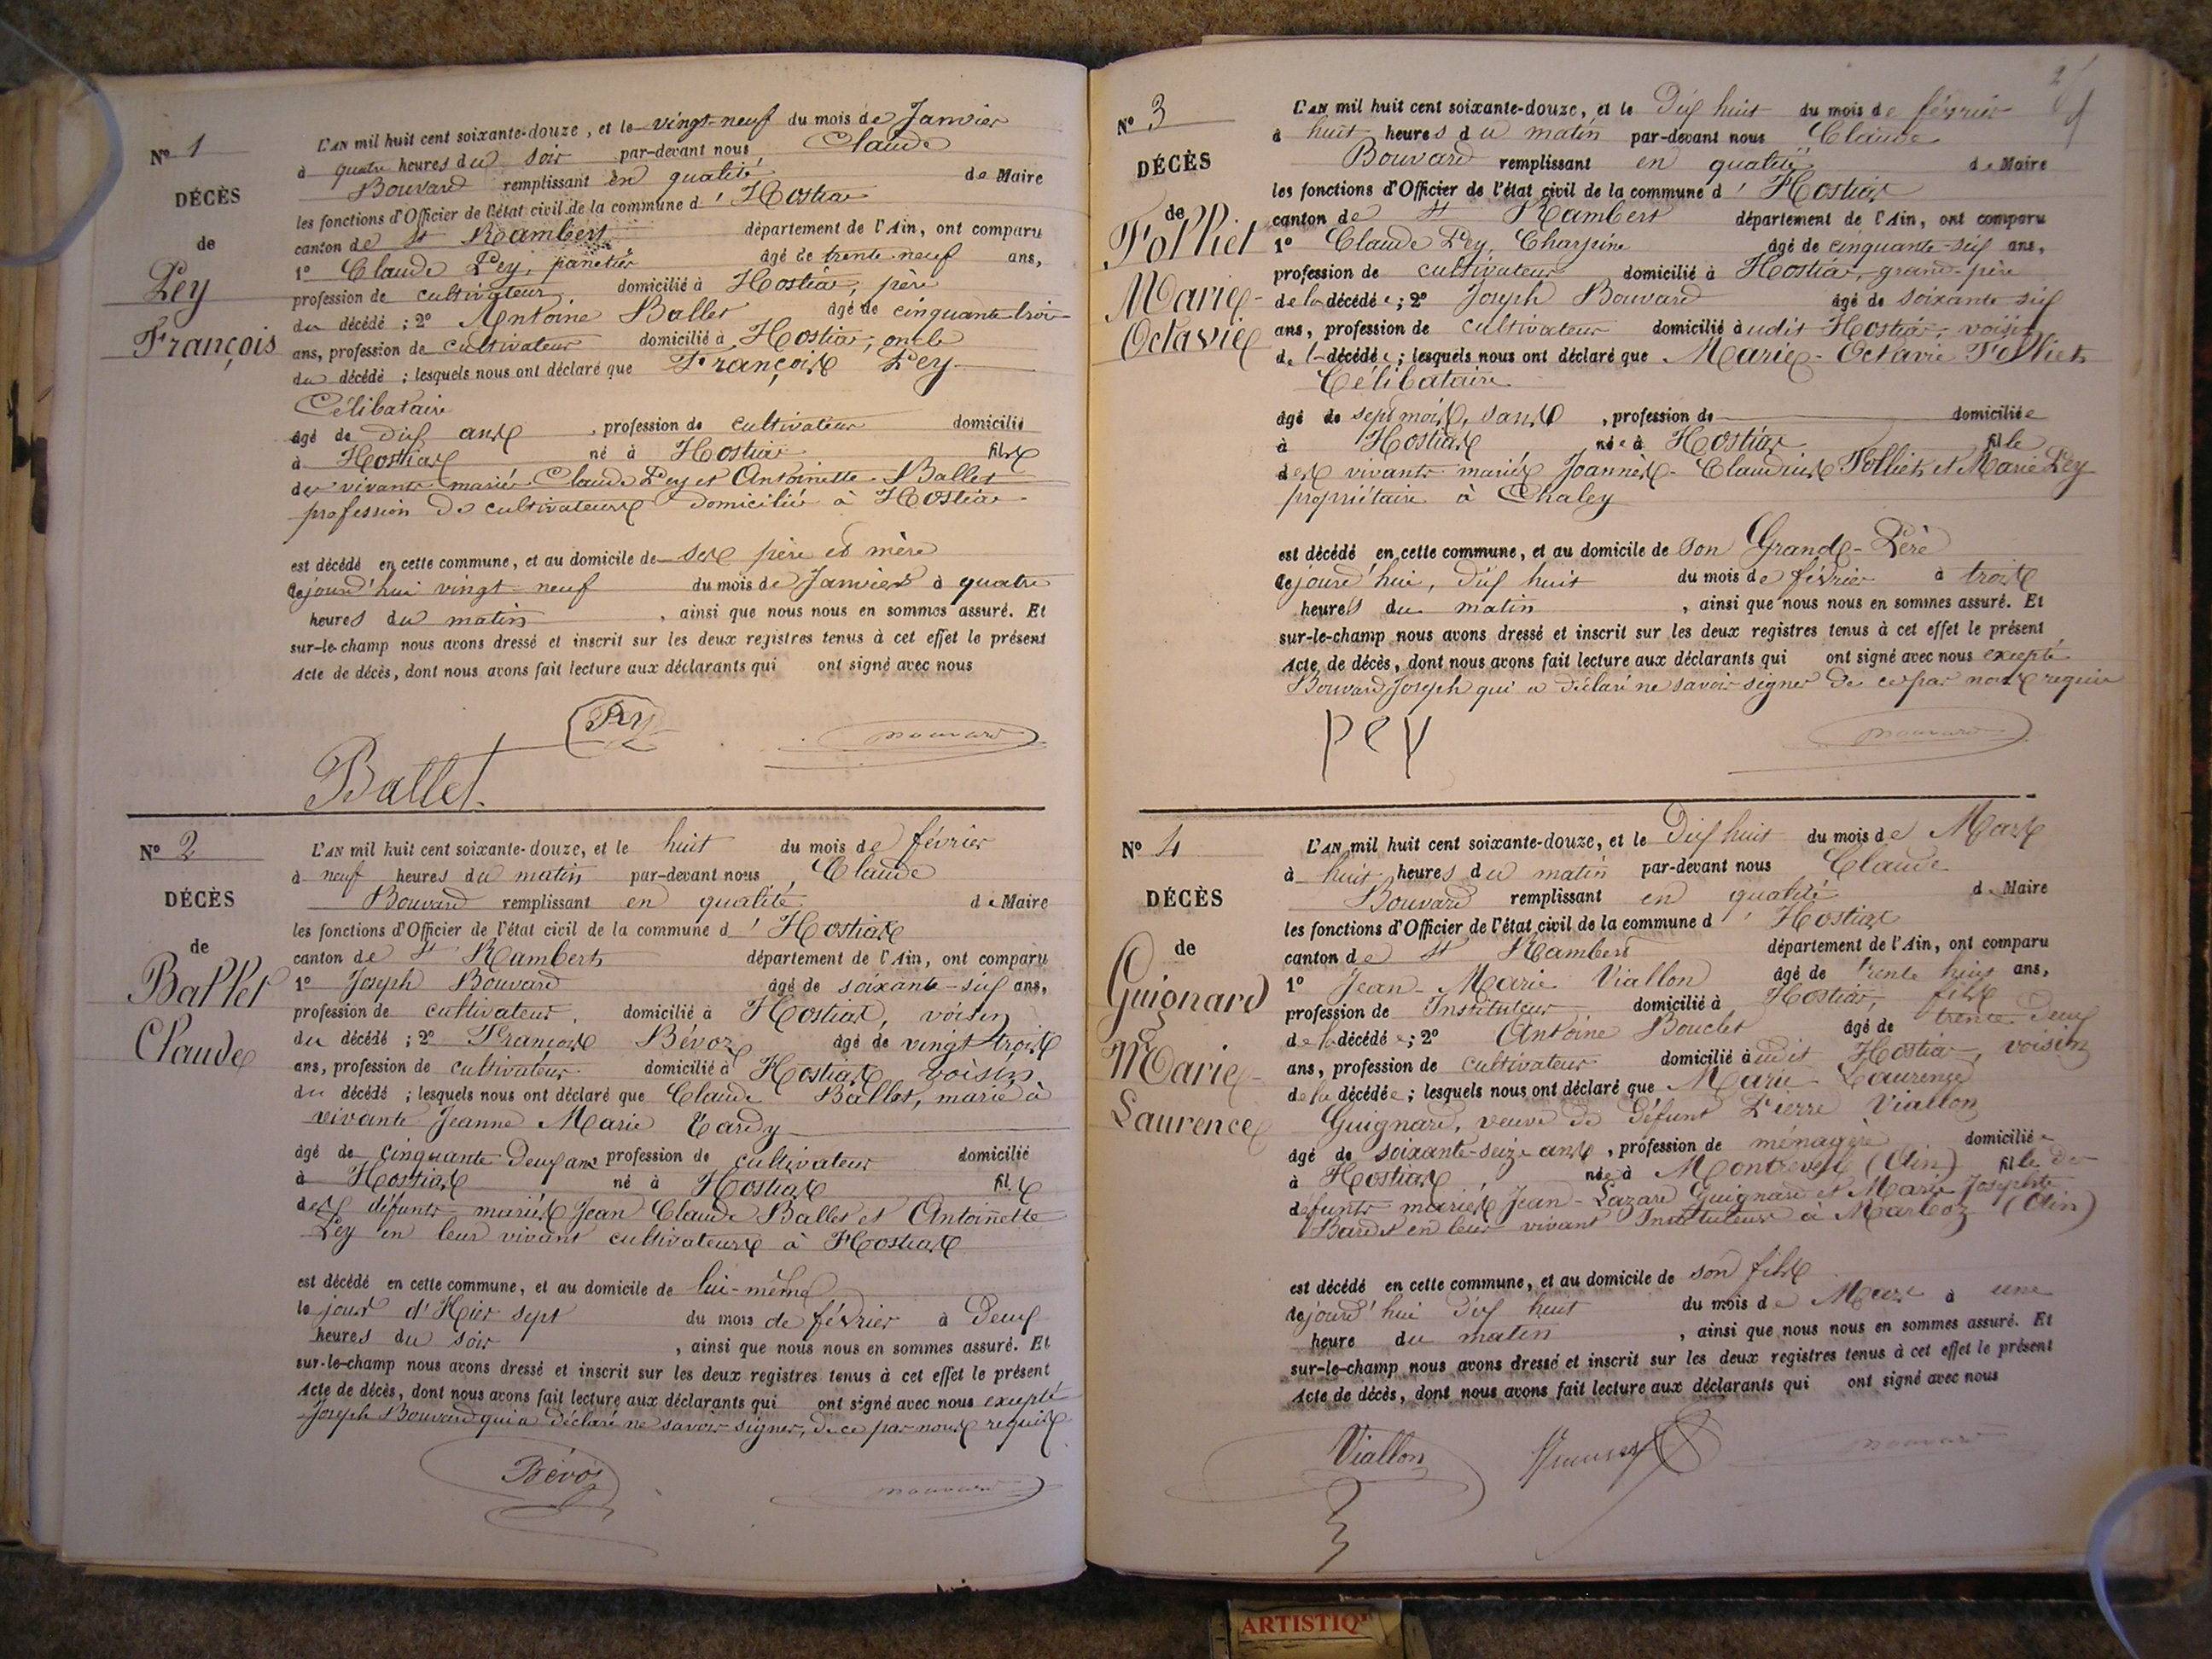 N° 1
DÉCÈS
de
Pey
François
L'AN mil huit cent soixante-douze, et le vingt-neuf du mois de Janvier
à quatre heures du soir par-devant nous Claude
Bouvard remplissant en qualité de Maire
les fonctions d'Officier de l'état civil de la commune d' Hostias
canton de St Rambert département de l'Ain, ont comparu
1° Claude Pey, panetier âgé de trente-neuf ans,
profession de cultivateur domicilié à Hostias, père
du décédé ; 2° Antoine Ballet âgé de cinquante-trois
ans, profession de cultivateur domicilié à Hostias, oncle
du décédé ; lesquels nous ont déclaré que François Pey
Célibataire
âgé de dix ans, profession de cultivateur domicilié
à Hostias né à Hostias fils
des vivants mariés Claude Pey et Antoinette Ballet
profession de cultivateurs domiciliés à Hostias
est décédé en cette commune, et au domicile de ses père et mère
cejourd'hui vingt-neuf du mois de Janvier à quatre
heures du matin, ainsi que nous nous en sommes assuré. Et
sur-le-champ nous avons dressé et inscrit sur les deux registres tenus à cet effet le présent
Acte de décès, dont nous avons fait lecture aux déclarants qui ont signé avec nous
Pey
Bouvard
Ballet
N° 2
DÉCÈS
de
Ballet
Claude
L'AN mil huit cent soixante-douze, et le huit du mois de février
à neuf heures du matin par-devant nous, Claude
Bouvard remplissant en qualité de Maire
les fonctions d'Officier de l'état civil de la commune d' Hostias
canton de St Rambert département de l'Ain, ont comparu
1° Joseph Bouvard âgé de soixante-six ans,
profession de cultivateur, domicilié à Hostias, voisin
du décédé ; 2° François Bévoz âgé de vingt trois
ans, profession de cultivateur domicilié à Hostias voisin
du décédé ; lesquels nous ont déclaré que Claude Ballet, marié à
vivante Jeanne Marie Tardy
âgé de cinquante deux ans profession de cultivateur domicilié
à Hostias né à Hostias fils
des défunts mariés Jean Claude Ballet et Antoinette
Pey en leur vivant cultivateurs à Hostias
est décédé en cette commune, et au domicile de lui-même
le jour d'Hier sept du mois de février à Deux
heures du soir, ainsi que nous nous en sommes assuré. Et
sur-le-champ nous avons dressé et inscrit sur les deux registres tenus à cet effet le présent
Acte de décès, dont nous avons fait lecture aux déclarants qui ont signé avec nous excepté
Joseph Bouvard qui a déclaré ne savoir signer, de ce par nous requis
Bévoz
Bouvard
N° 3
DÉCÈS
de
Folliet
Marie-
Octavie
L'AN mil huit cent soixante-douze, et le Dix huit du mois de février
à huit heures du matin par-devant nous Claude
Bouvard remplissant en qualité de Maire
les fonctions d'Officier de l'état civil de la commune d' Hostias
canton de St Rambert département de l'Ain, ont comparu
1° Claude Pey, Charpine âgé de cinquante-six ans,
profession de cultivateur domicilié à Hostias, grand-père
de la décédée ; 2° Joseph Bouvard âgé de soixante six
ans, profession de cultivateur domicilié audit Hostias, voisin
de la décédée ; lesquels nous ont déclaré que Marie-Octavie Folliet
Célibataire
âgé de sept mois, sans, profession de domiciliée
à Hostias née à Hostias fille
des vivants mariés Joannès-Claudius Folliet et Marie Pey
propriétaire à Chaley
est décédé en cette commune, et au domicile de son Grand-Père
cejourd'hui, dix huit du mois de février à trois
heures du matin, ainsi que nous nous en sommes assuré. Et
sur-le-champ nous avons dressé et inscrit sur les deux registres tenus à cet effet le présent
Acte de décès, dont nous avons fait lecture aux déclarants qui ont signé avec nous excepté
Bouvard Joseph qui a déclaré ne savoir signer de ce par nous requis
pey
Bouvard
N° 4
DÉCÈS
de
Guignard
Marie-
Laurence
L'AN mil huit cent soixante-douze, et le Dix huit du mois de Mars
à huit heures du matin par-devant nous Claude
Bouvard remplissant en qualité de Maire
les fonctions d'Officier de l'état civil de la commune d' Hostias
canton de St Rambert département de l'Ain, ont comparu
1° Jean-Marie Viallon âgé de trente huit ans,
profession de Instituteur domicilié à Hostias, fils
de la décédée ; 2° Antoine Bouclet âgé de trente deux
ans, profession de cultivateur domicilié audit Hostias, voisin
de la décédée ; lesquels nous ont déclaré que Marie-Laurence
Guignard, veuve de défunt Pierre Viallon
âgé de soixante-seize ans, profession de ménagère domiciliée
à Hostias, née à Montrevel (Ain) fille de
défunts mariés Jean-Lazare Guignard et Marie Josephte
Bardet en leur vivant Instituteur à Marboz (Ain)
est décédé en cette commune, et au domicile de son fils
cejourd'hui dix huit du mois de Mars à une
heure du matin, ainsi que nous nous en sommes assuré. Et
sur-le-champ nous avons dressé et inscrit sur les deux registres tenus à cet effet le présent
Acte de décès, dont nous avons fait lecture aux déclarants qui ont signé avec nous
Viallon
Bouvard
ARTISTIQ